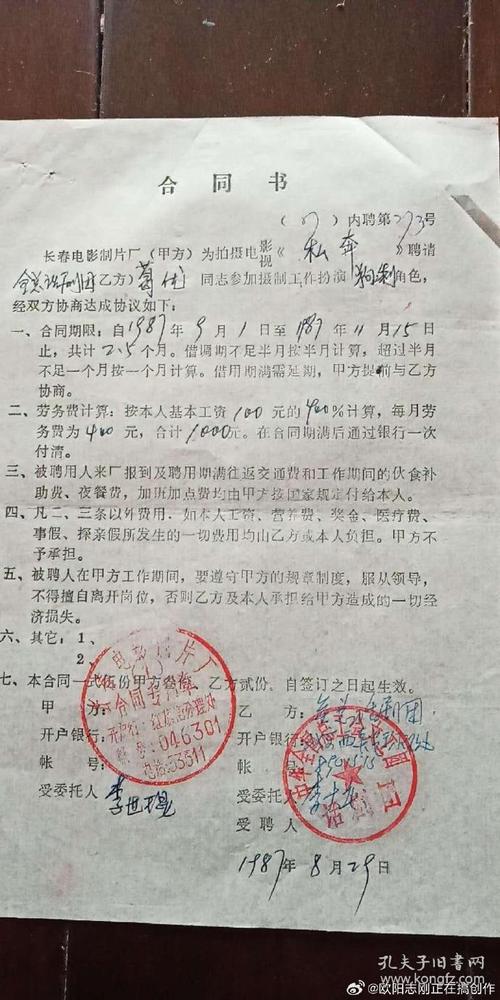 合同书
(87)内聘第273号
长春电影制片厂(甲方)为拍摄电影视《私奔》聘请
全总话剧团乙方)葛优同志参加摄制工作扮演角色,
经双方协商达成协议如下:
一、合同期限:自1987年9月1日至1987年11月15日
止,共计2.5个月。借调期不足半月按半月计算,超过半月
不足一个月按一个月计算。借用期满需延期,甲方提前与乙方
协商。
二、劳务费计算:按本人基本工资100元的400%计算,每月劳
务费为400元,合计1000元。在合同期满后通过银行一次
付清。
三、被聘用人来厂报到及聘用期满往返交通费和工作期间的伙食补
助费、夜餐费,加班加点费均由甲方按国家规定付给本人。
四、凡二、三条以外费用,如本人工资、营养费、奖金、医疗费、
事假、探亲假所发生的一切费用均由乙方或本人负担。甲方不
予承担。
五、被聘人在甲方工作期间,要遵守甲方的规章制度,服从领导,
不得擅自离开岗位,否则乙方及本人承担给甲方造成的一切经
济损失。
六、其它:1、
2、
七、本合同一式伍份甲方叁份,乙方贰份,自签订之日起生效。
甲方:
开户银行:
帐号:
受委托人
电影制片厂
合同专用章
开户行:红旗街分理处
帐号:046301
电话:53511
乙方:全总话剧团
开户银行:
帐号:
受委托人
受聘人
话剧团
1987年8月29日
孔夫子旧书网
@欧阳志刚正在搞创作